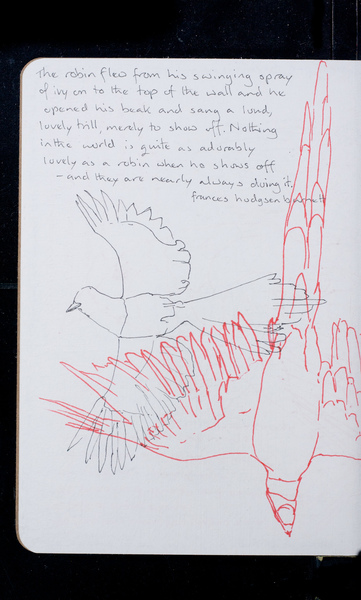 The robin flew from his swinging spray
of ivy on to the top of the wall and he
opened his beak and sang a loud,
lovely trill, merely to show off. Nothing
in the world is quite as adorably
lovely as a robin when he shows off
- and they are nearly always doing it.
frances hodgson burnett